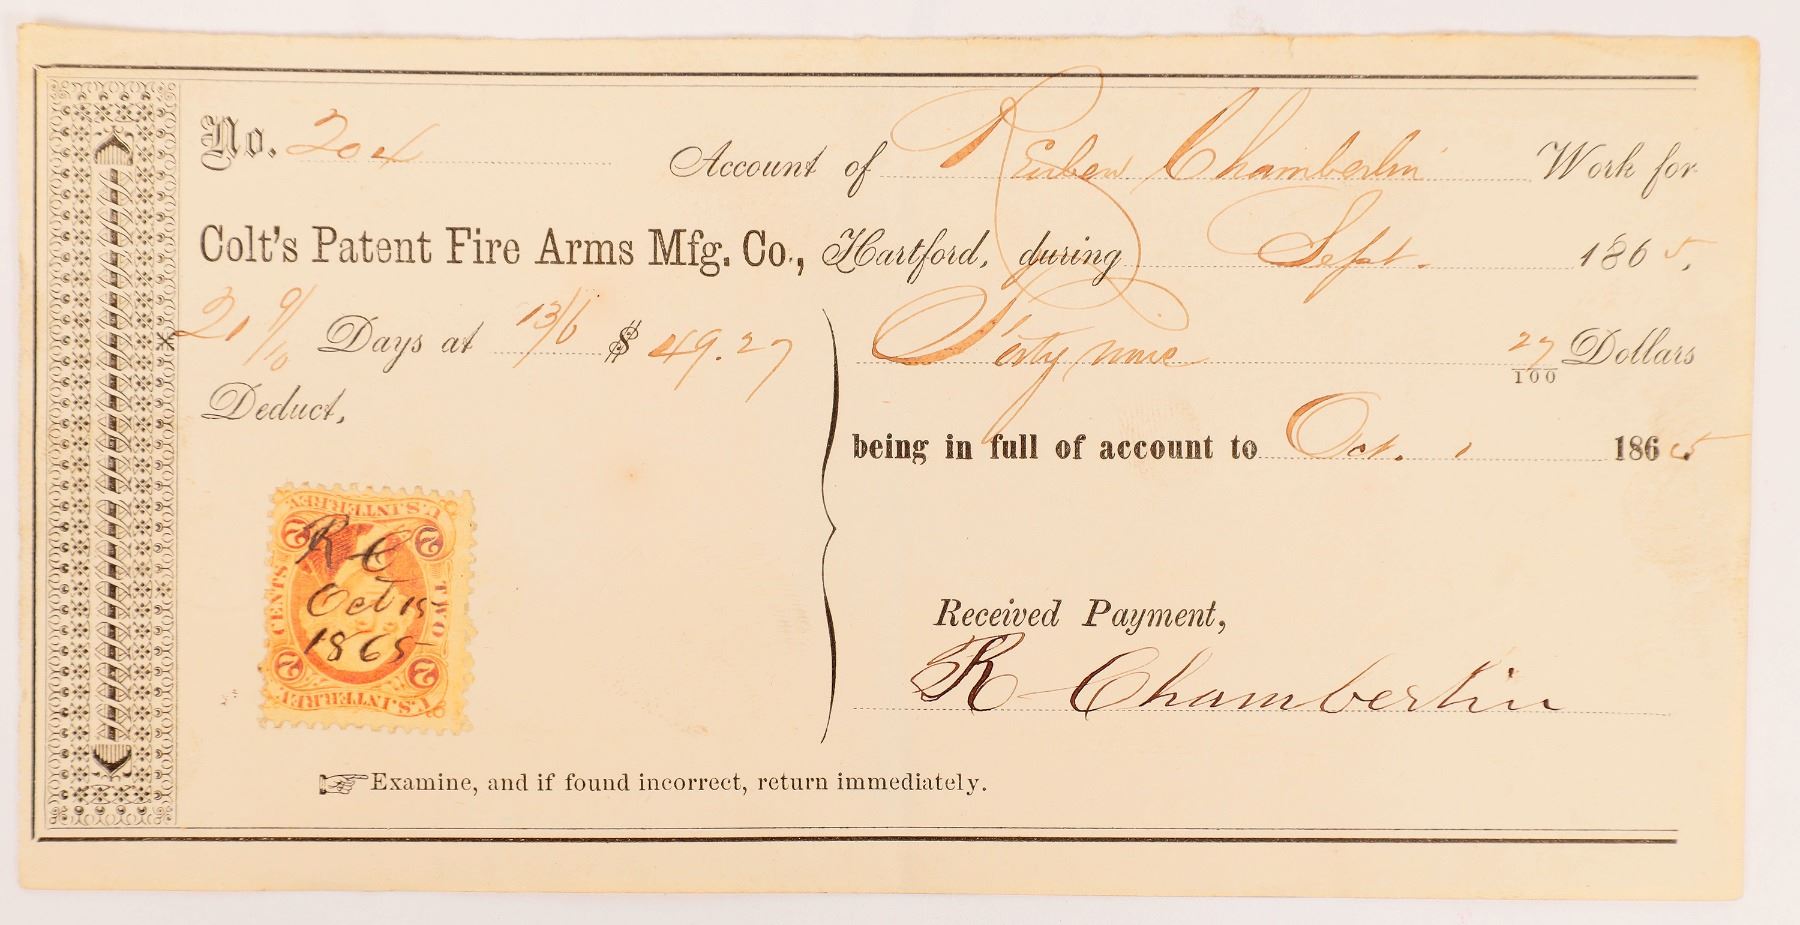 No. 204 Account of Reuben Chamberlin Work for
Colt's Patent Fire Arms Mfg. Co., Hartford, during Sept. 1865.
21 9/10 Days at 13/6 $ 49.27 Forty nine 27/100 Dollars
Deduct,
being in full of account to Oct. 1 1865
U.S. INTER. REV.
2 2
R C
Oct 15
1865
CENTS TWO
2 2
U.S. INTER. REV.
Received Payment,
R Chamberlin
Examine, and if found incorrect, return immediately.